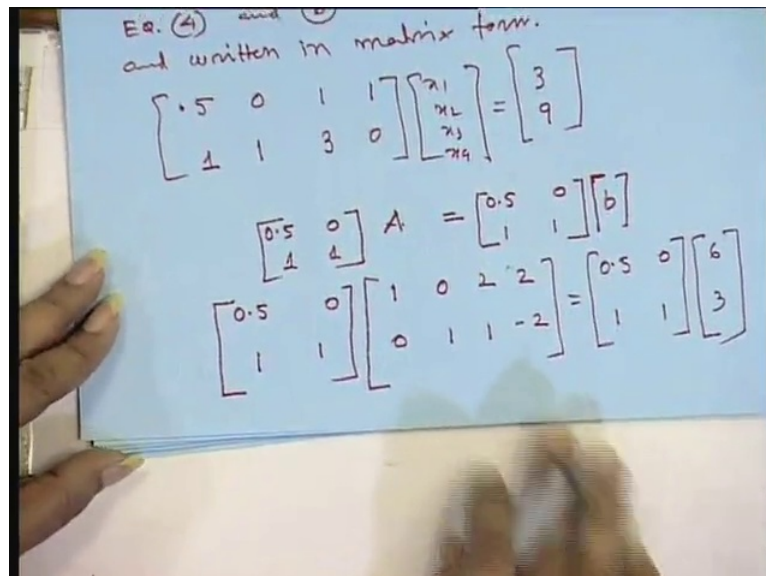 EQ. (4) and
and written in matrix form.
[.5 0 1 1; 1 1 3 0] [x1; x2; x3; x4] = [3; 9]
[0.5 0; 1 1] A = [0.5 0; 1 1] [b]
[0.5 0; 1 1] [1 0 2 2; 0 1 1 -2] = [0.5 0; 1 1] [6; 3]